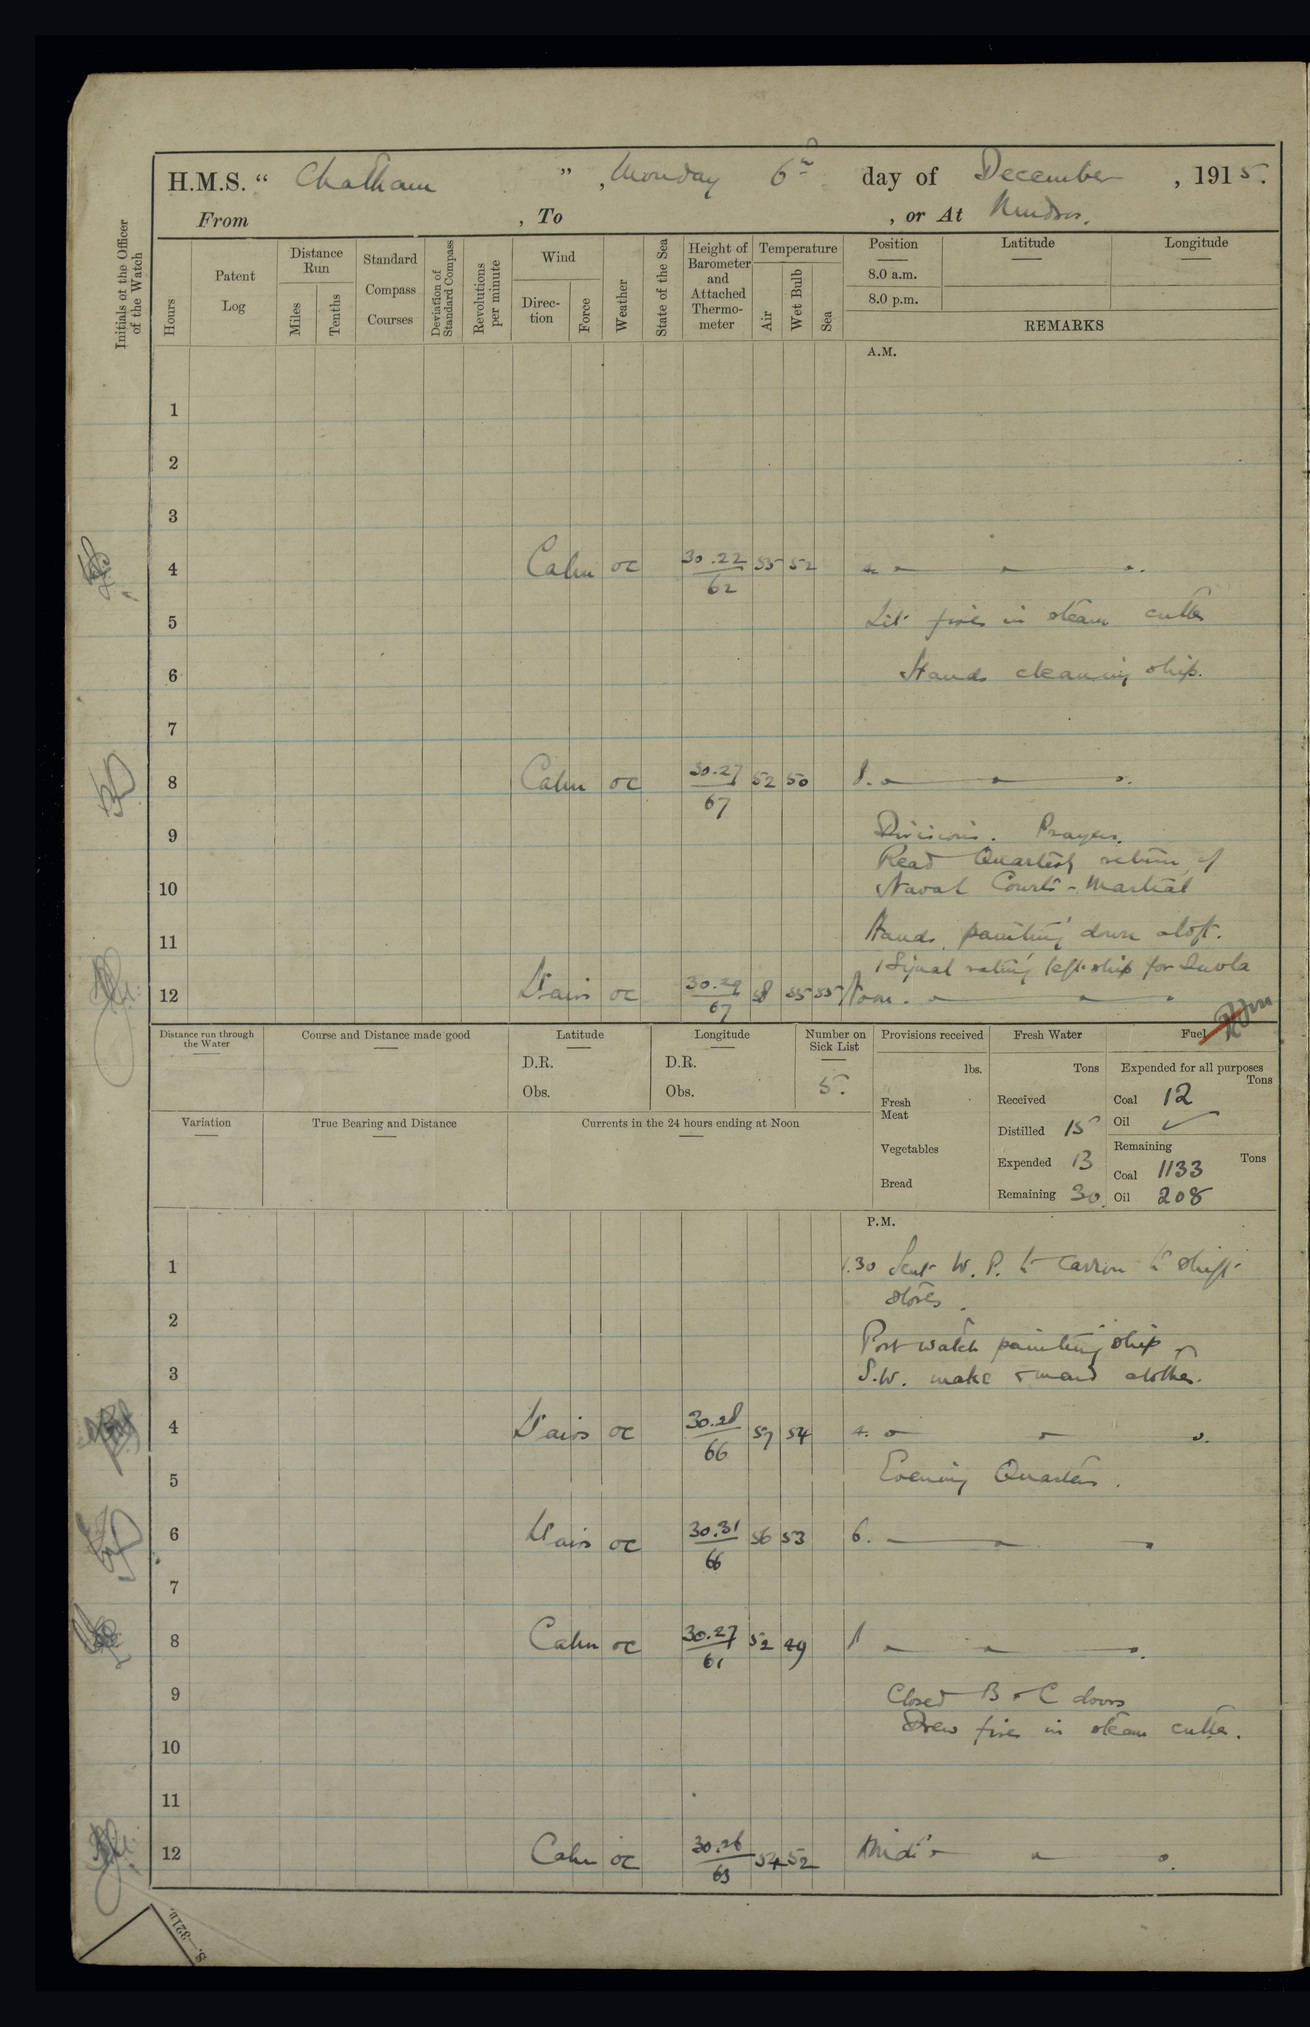 H.M.S. “ Chatham ” , Monday 6th day of December , 1915.
From , To , or At Mudros.
Initials of the Officer of the Watch
Hours
Patent Log
Distance Run
Miles
Tenths
Standard Compass Courses
Deviation of Standard Compass
Revolutions per minute
Wind
Direc-tion
Force
Weather
State of the Sea
Height of Barometer and Attached Thermo-meter
Temperature
Air
Wet Bulb
Sea
Position
Latitude
Longitude
8.0 a.m.
8.0 p.m.
REMARKS
A.M.
1
2
3
4 Calm oc 30.22/62 55 52 4. " " ".
5 Lit fires in steam cutter
6 Hands cleaning ship.
7
8 Calm oc 30.27/67 52 50 8. " " ".
9 Divisions. Prayers.
Read Quarterly return of
10 Naval Courts-Martial
11 Hands painting down aloft.
1 Signal rating left ship for
12 Lt airs oc 30.29/67 58 55 55 Noon. " " "
Distance run through the Water
Course and Distance made good
Latitude
D.R.
Obs.
Longitude
D.R.
Obs.
Number on Sick List
5.
Provisions received
lbs.
Fresh Meat
Vegetables
Bread
Fresh Water
Tons
Received
Distilled 15
Expended 13
Remaining 30
Fuel
Expended for all purposes
Tons
Coal 12
Oil ✓
Remaining
Tons
Coal 1133
Oil 208
Variation
True Bearing and Distance
Currents in the 24 hours ending at Noon
P.M.
1 1.30 Sent W. P. to Carron to shift
stores.
2 Port watch painting ship
3 S.W. make & mend clothes.
4 Lt airs oc 30.28/66 57 54 4. " " ".
5 Evening Quarters.
6 Lt airs oc 30.31/66 56 53 6. " " "
7
8 Calm oc 30.27/61 52 49 8 " " ".
9 Closed B & C doors
Drew fires in steam cutter.
10
11
12 Calm oc 30.26/63 54 52 Midt " " ".
S.—321b.